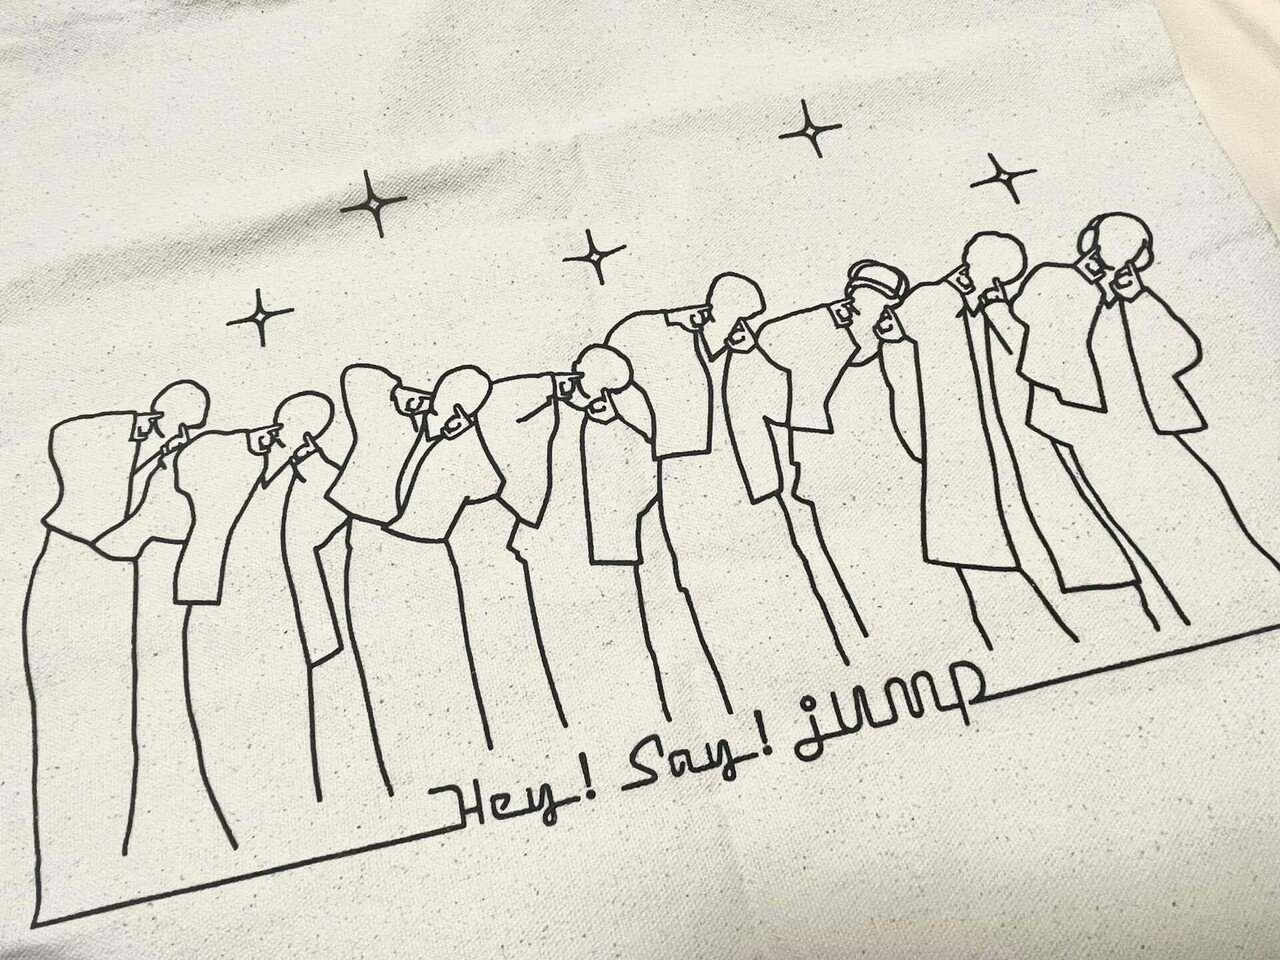 Hey! Say! jump